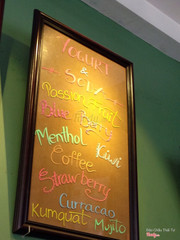 YOGURT
& SODA
Passion Fruit
Blue Berry
Menthol Kiwi
Coffee
Strawberry
Curacao
Kumquat Mojito